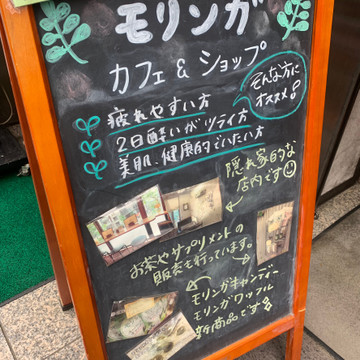 モリンガ
カフェ & ショップ
疲れやすい方
2日酔いがツライ方
美肌、健康的でいたい方
そんな方に
オススメ!
隠れ家的な
店内です
お茶やサプリメントの
販売も行っています。
モリンガキャンディー
モリンガワッフル
新商品です